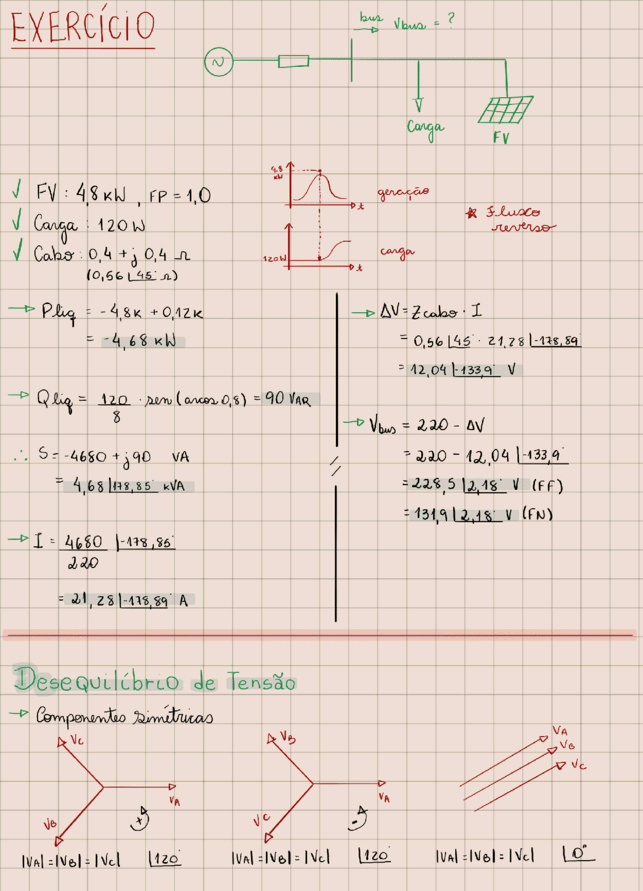 EXERCÍCIO
bus Vbus = ?
N
Carga
FV
✓ FV : 4,8 kW , FP = 1,0
✓ Carga : 120 W
✓ Cabo : 0,4 + j 0,4 Ω
(0,56 |45° Ω)
4,8 kW
t
geração
120W
t
carga
* Fluxo reverso
→ Pliq = -4,8k + 0,12k
= -4,68 kW
→ Qliq = 120/8 · sen (arcos 0,8) = 90 VAR
∴ S = -4680 + j90 VA
= 4,68 |178,85° kVA
→ I = 4680/220 |-178,85°
= 21,28 |-178,89° A
→ ΔV = Zcabo · I
= 0,56 |45° · 21,28 |-178,89°
= 12,04 |-133,9° V
→ Vbus = 220 - ΔV
= 220 - 12,04 |-133,9°
= 228,5 |2,18° V (FF)
= 131,9 |2,18° V (FN)
Desequilíbrio de Tensão
→ Componentes simétricas
VC
VA
VB
+
|VA| = |VB| = |VC| |120°
VB
VA
VC
-
|VA| = |VB| = |VC| |120°
VA
VB
VC
|VA| = |VB| = |VC| |0°